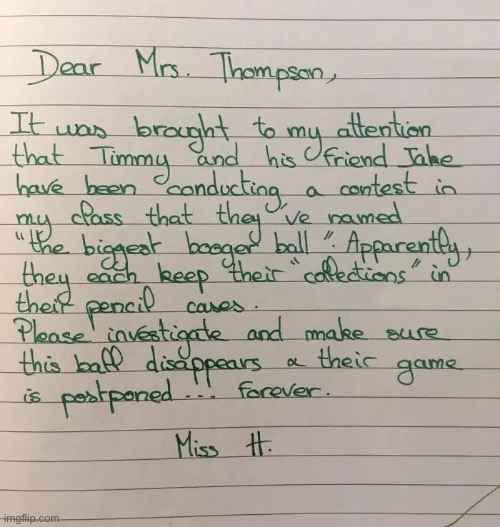 Dear Mrs. Thompson,
It was brought to my attention
that Timmy and his friend Jake
have been conducting a contest in
my class that they 've named
"the biggest booger ball". Apparently,
they each keep their "collections" in
their pencil cases.
Please investigate and make sure
this ball disappears & their game
is postponed... forever.
Miss H.
imgflip.com